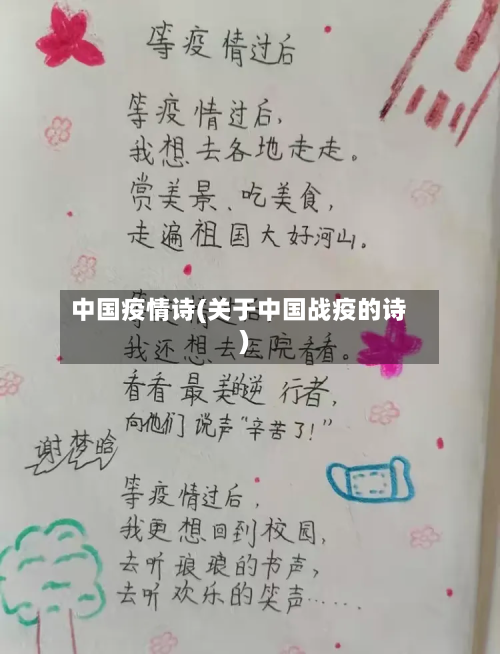 等疫情过后
等疫情过后，
我想去各地走走。
赏美景、吃美食，
走遍祖国大好河山。
中国疫情诗(关于中国战疫的诗
)
我还想去医院看看。
看看最美的逆行者，
向他们说声“辛苦了！”
谢梦晗
等疫情过后，
我更想回到校园，
去听琅琅的书声，
去听欢乐的笑声……